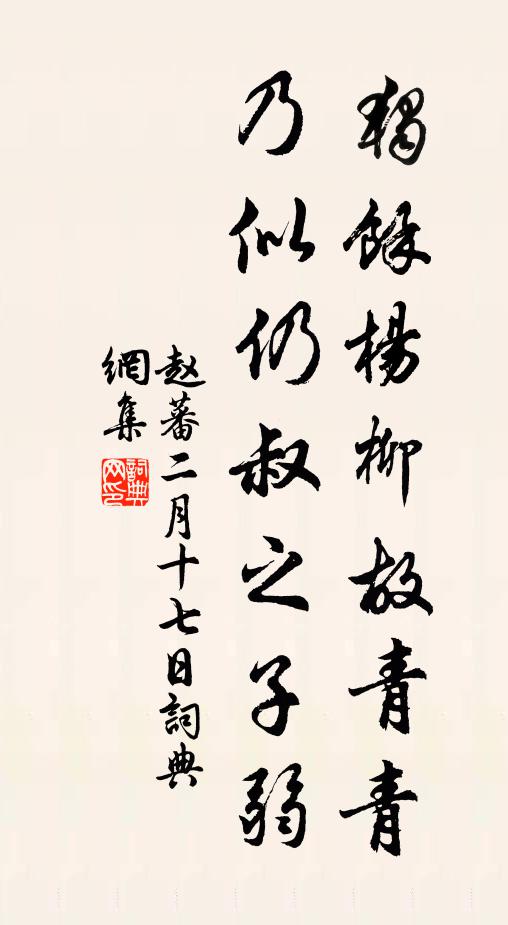 獨餘楊柳故青青
乃似仍叔之子弱
赵蕃二月十七日詞典
網集
詞典网印